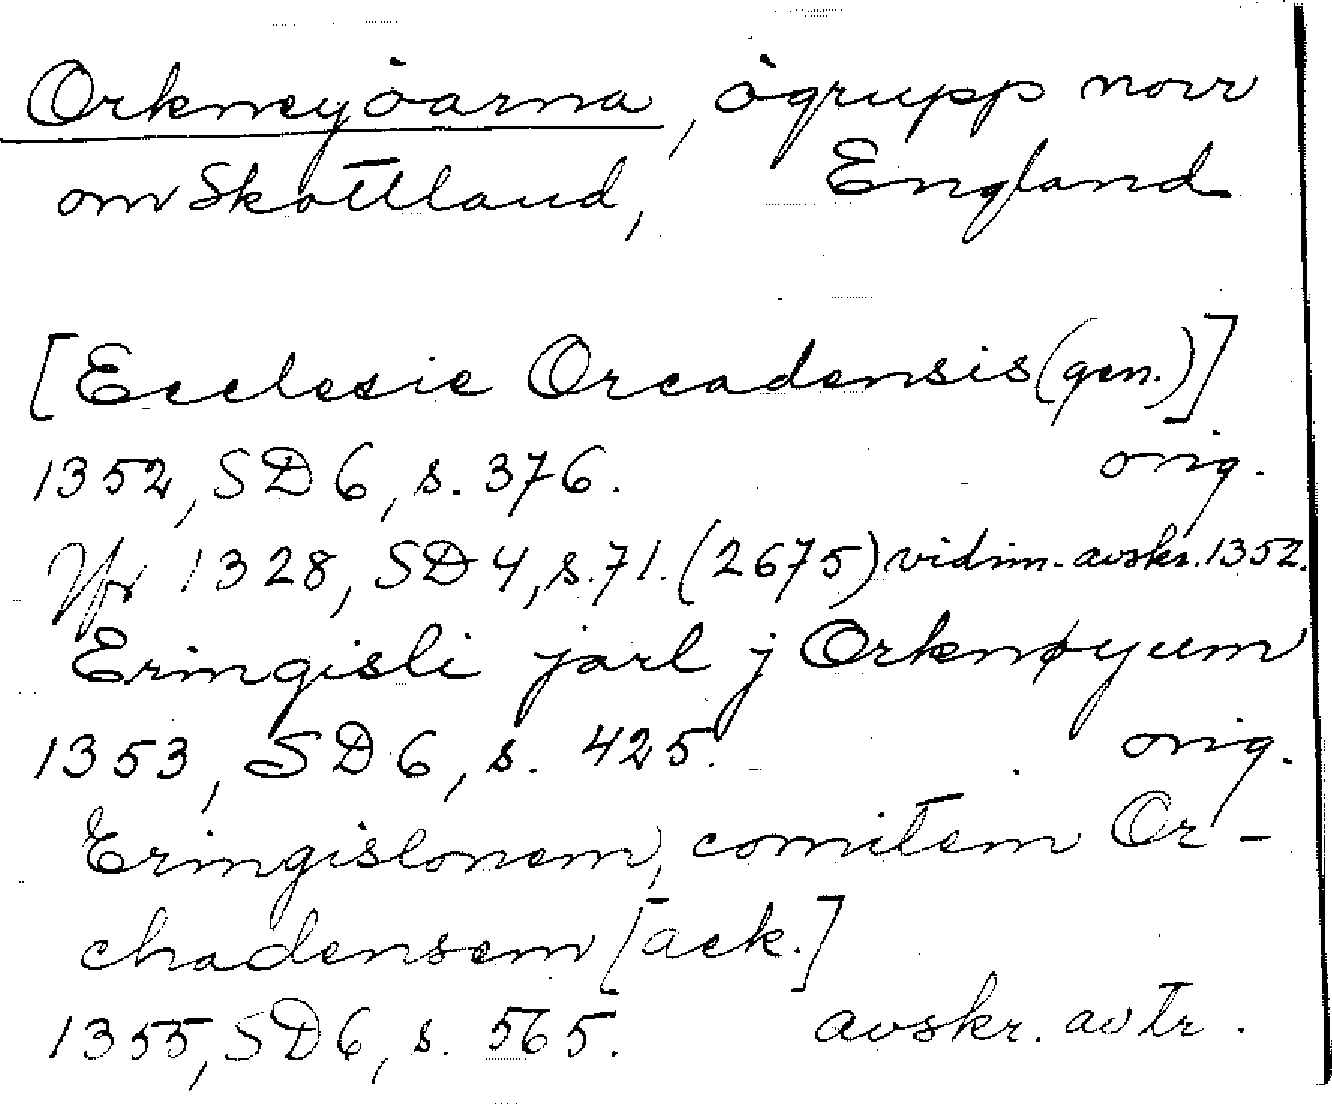 Orkneyöarna, ögrupp norr
om Skottland, England
[Ecclesie Orcadensis (gen.)]
1352, SD 6, s. 376. orig.
Jfr 1328, SD 4, s. 71. (2675) vidim. avskr. 1352.
Eringisli jarl j Orknøyum
1353, SD 6, s. 425. orig.
Eringislonem, comitem Or-
chadensem [ack.]
1355, SD 6, s. 565. avskr. av tr.